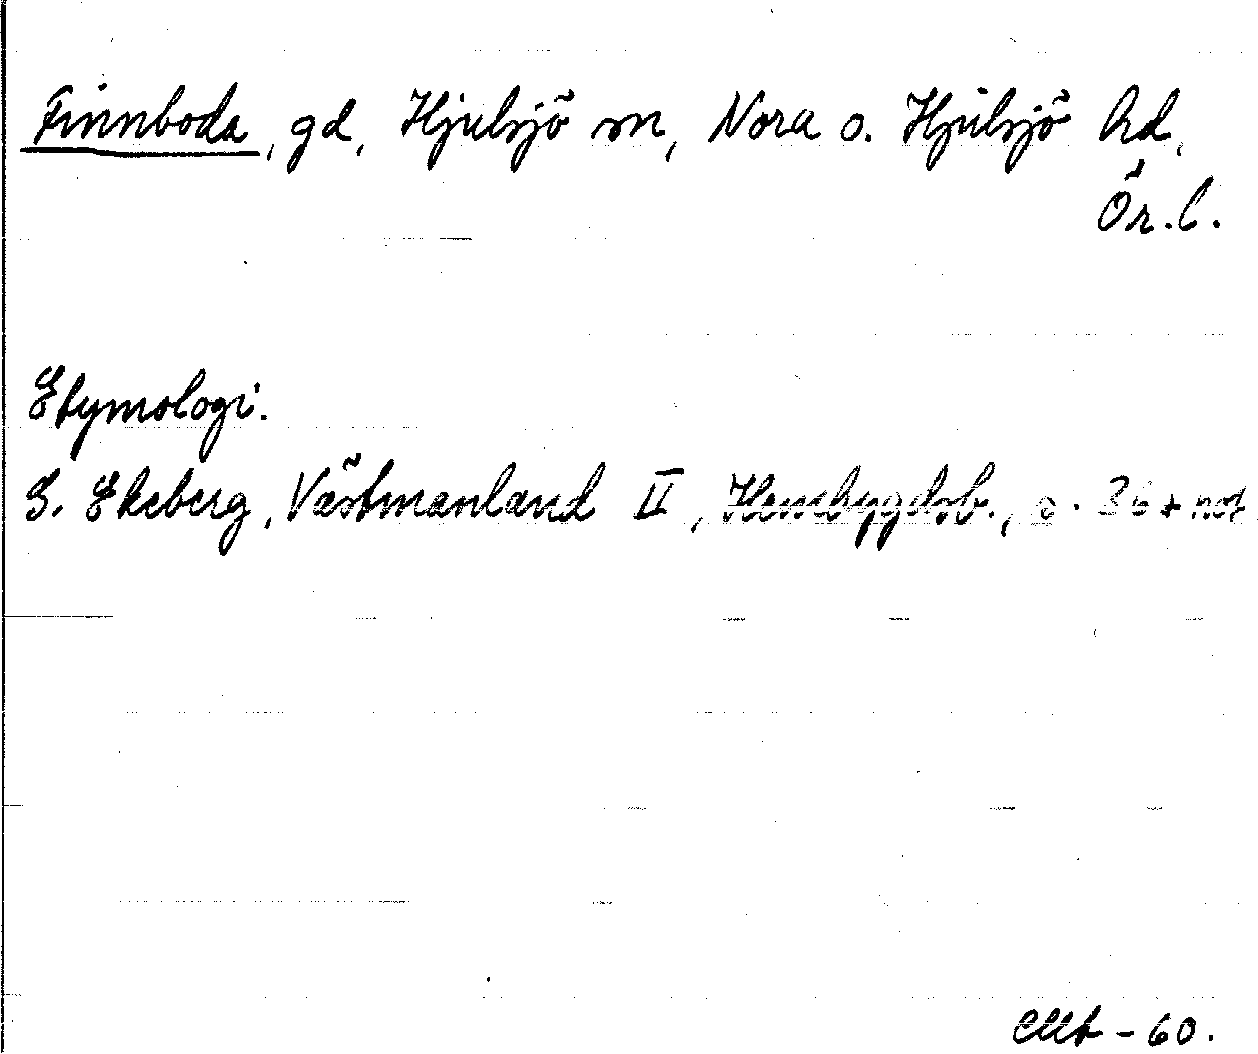 Finnboda, gd, Hjulsjö sn, Nora o. Hjulsjö hd,
Ör. l.
Etymologi.
G. Ekeberg, Västmanland II, Hembygdsb., s. 36 + not